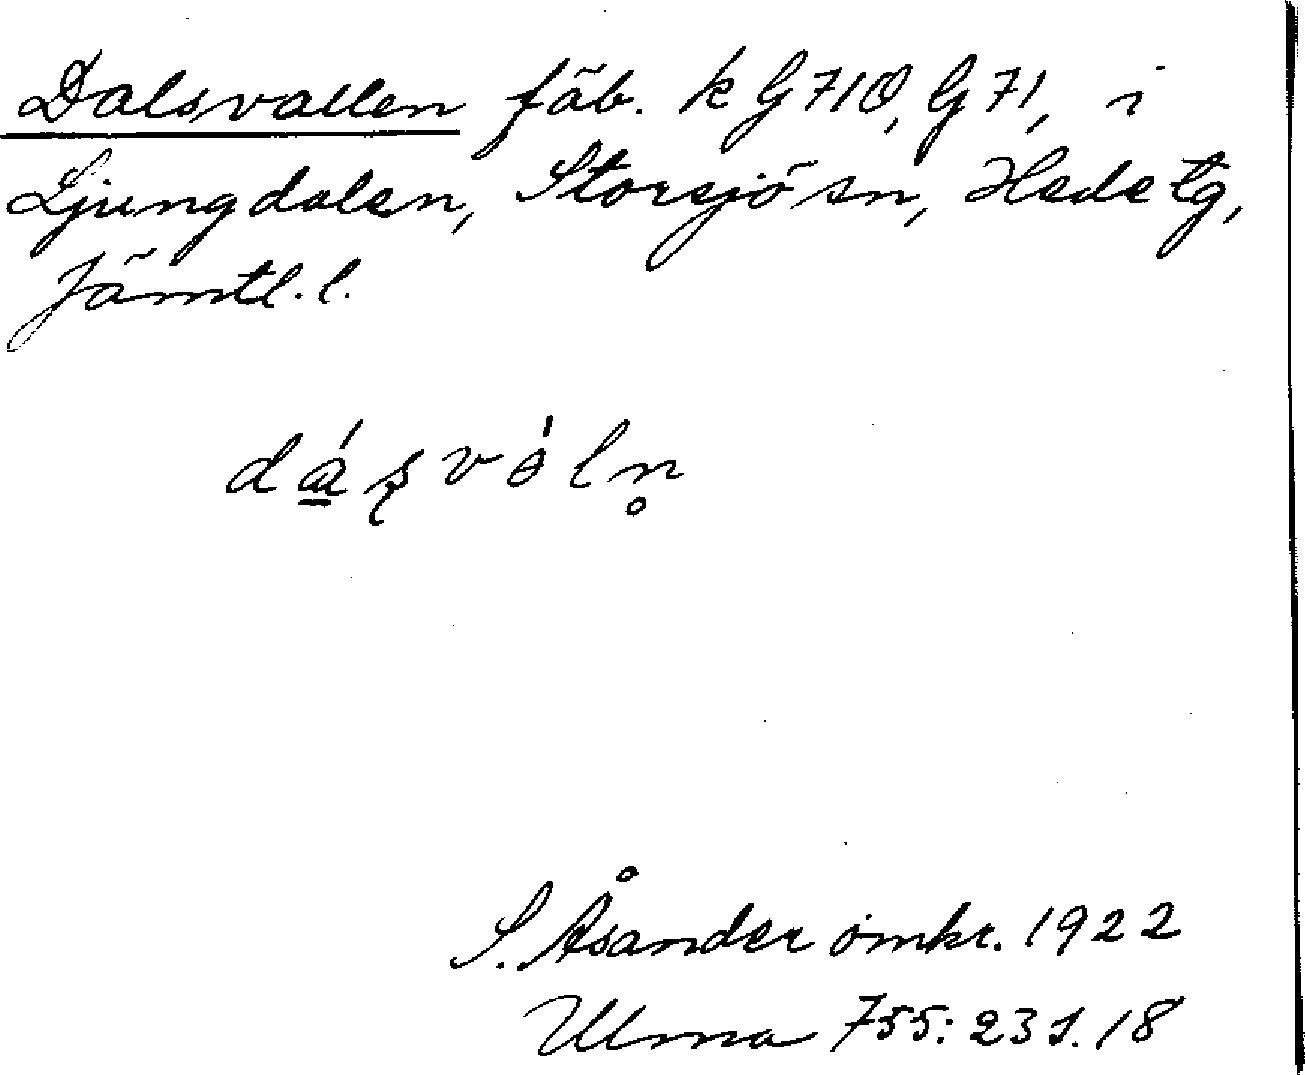 Dalsvallen fäb. k G710, G71, i
Ljungdalen, Storsjö sn, Hede tg,
Jämtl. l.
dá̱ʂvɵ́ln̥
S. Åsander omkr. 1922
Ulma 755: 23 s. 18